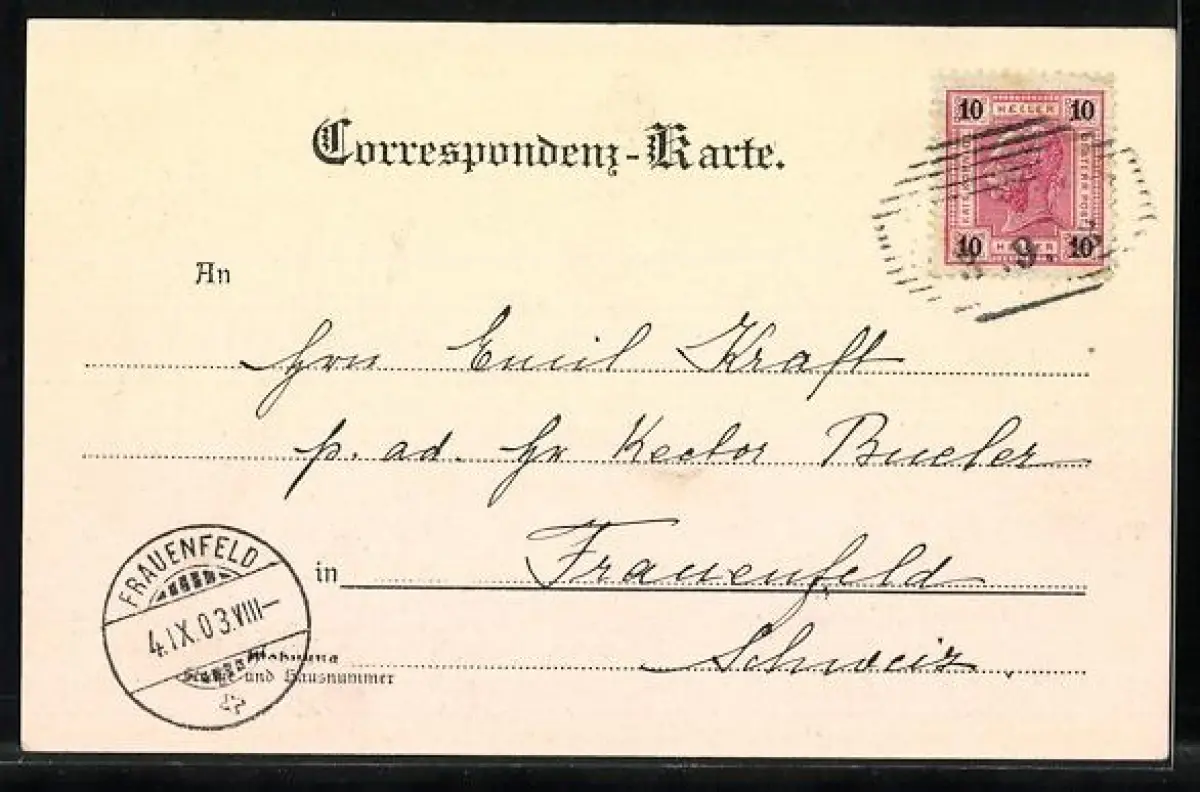 Correspondenz-Karte.
10 HELLER 10
KAISERTHUM
ÖSTERR. POST.
10 HELLER 10
9.
An
Hrn Emil Kraft
p. ad. Hr Rector Bueler
in Frauenfeld
Schweiz
FRAUENFELD
4.IX.03.VIII—
Wohnung
Straße und Hausnummer